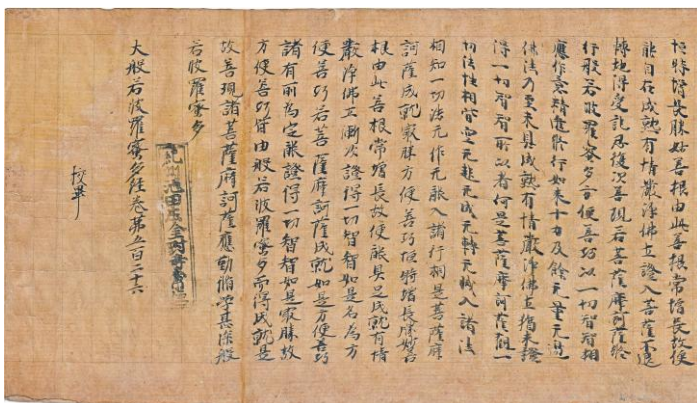 恒時增長勝妙善根由此善根常增長故便
能自在成熟有情嚴淨佛土證入菩薩不退
轉地得受記莂復次善現若菩薩摩訶薩於
行般若波羅蜜多方便善巧以一切智智相
應作意精進修行如來十力及餘无量无邊
佛法乃至未具成熟有情嚴淨佛土猶未證
得一切智智所以者何是菩薩摩訶薩觀一
切法性相皆空无起无成无轉无滅入諸法
相知一切法无作无能入諸行相是菩薩摩
訶薩成就最勝方便善巧便特增長勝妙善
根由此善根常增長故便能具足成就有情
嚴淨佛土漸次證得一切智智如是名為方
便善巧若菩薩摩訶薩成就如是方便善巧
諸有所為定能證得一切智智如是最勝故
方便善巧皆由般若波羅蜜多而得成就是
故善現諸菩薩摩訶薩應勤脩學甚深般
若波羅蜜多
大般若波羅蜜多經卷第五百二十六
校畢